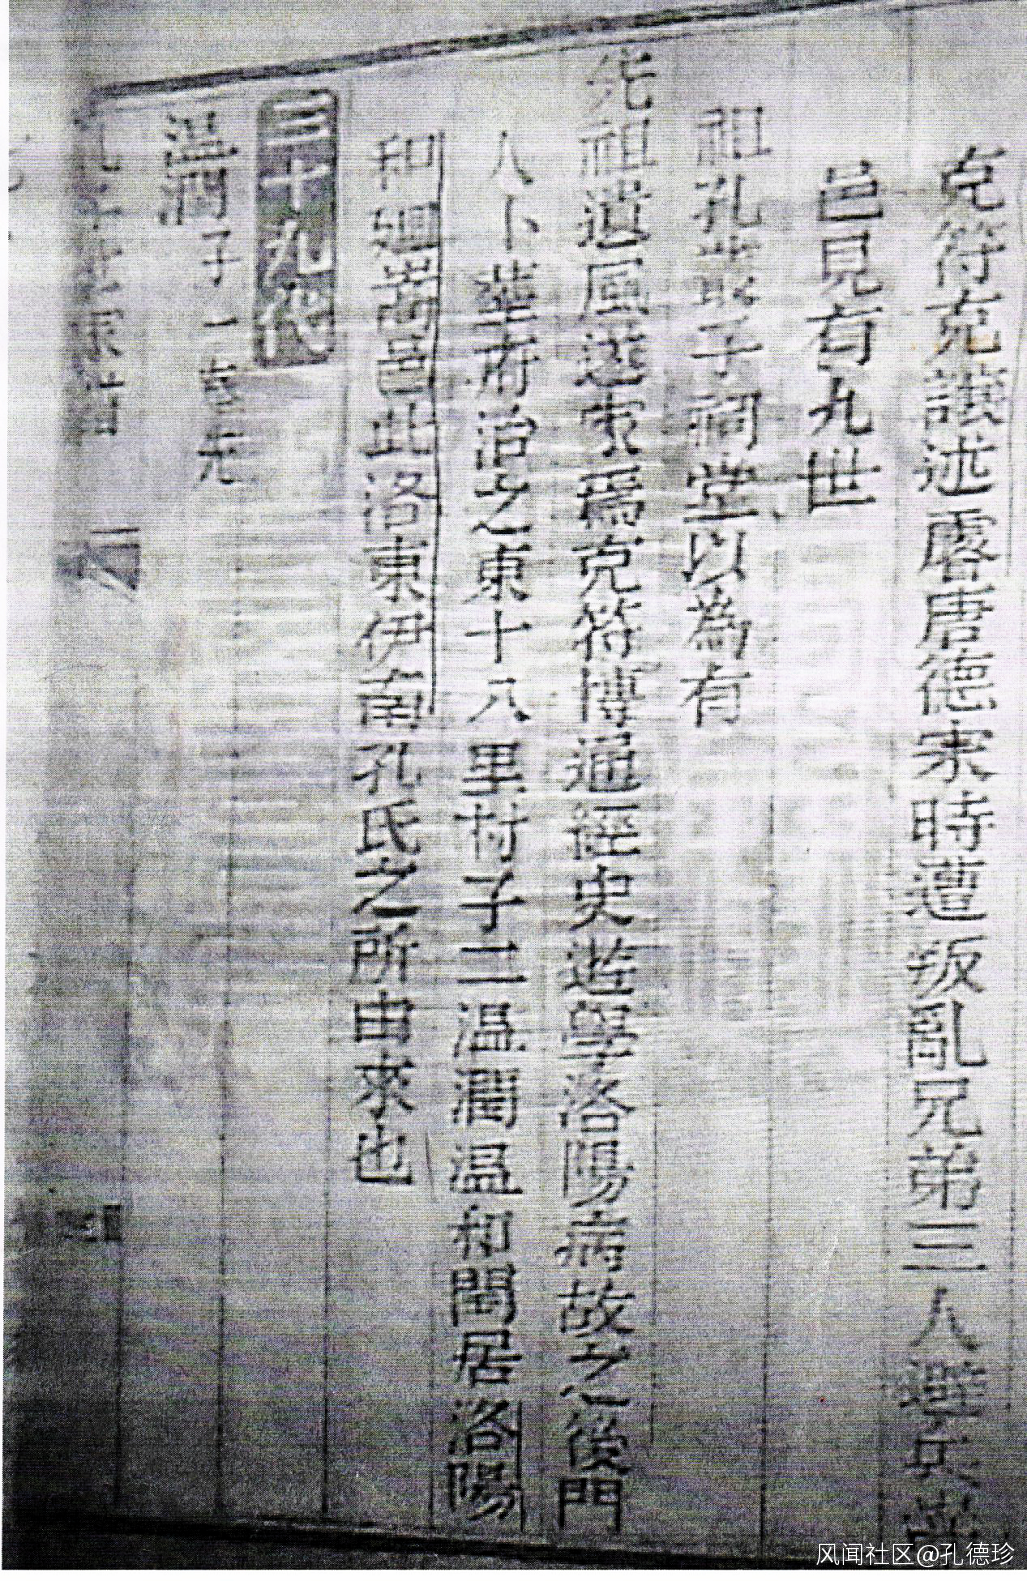 克符克讓述睿唐德宋時遭叛亂兄弟三人避兵嵩
邑見有九世
祖孔 子祠堂以為有
先祖遺風遂家焉克符博通經史遊學洛陽病故之後門
人卜葬府治之東十八里村子二溫潤溫和閏居洛陽
和迴嵩邑此洛東伊南孔氏之所由來也
三十九代
溫潤子一 元
風闻社区@孔德珍